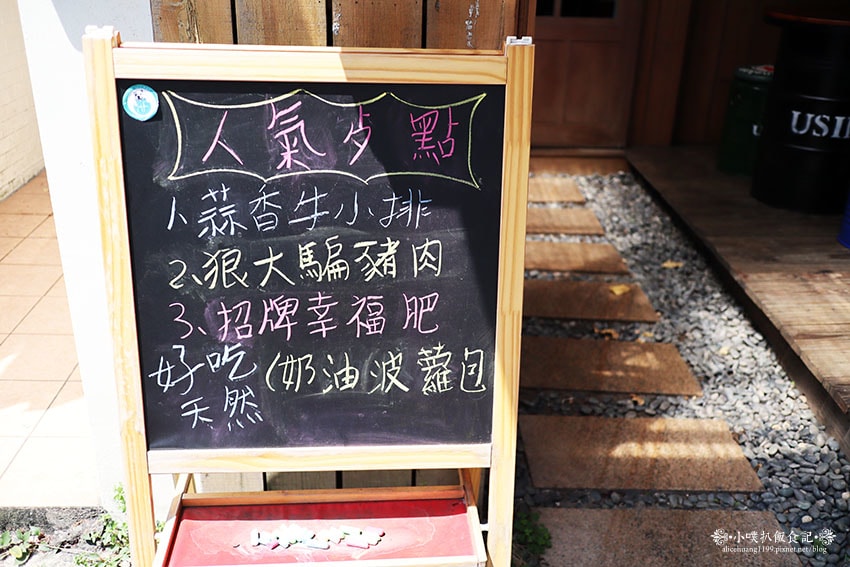 人氣歺點
1、蒜香牛小排
2、狠大騙豬肉
3、招牌幸福肥
好吃
天然
(奶油波蘿包
USII
小噗扒飯食記
alicehuang1199.pixnet.net/blog